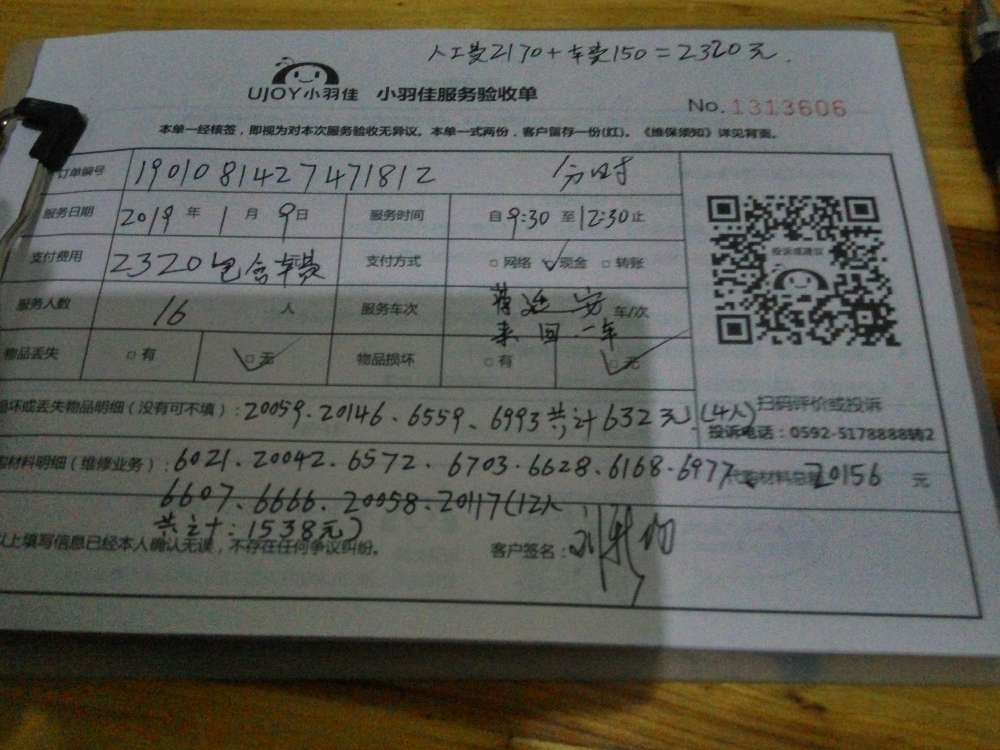 人工费2170+车费150=2320元.
UJOY小羽佳 小羽佳服务验收单
No. 1313606
本单一经核签，即视为对本次服务验收无异议。本单一式两份，客户留存一份(红)。《维保须知》详见背面。
订单编号 1901081427471812 分时
服务日期 2019 年 1 月 9 日 服务时间 自 9:30 至 12:30 止
支付费用 2320包含车费 元 支付方式 □网络 ☑现金 □转账
服务人数 16 人 服务车次 来回一车 车/次
物品丢失 □有 ☑无 物品损坏 □有 ☑无
投诉或建议
扫码评价或投诉
投诉电话：0592-5178888转2
坏或丢失物品明细（没有可不填）：20059.20146.6559.6993共计632元.(4人)
材料明细（维修业务）：6021.20042.6572.6703.6628.6168.6977、代购材料总额 20156 元
6607.6666.20058.20117(12人
共计：1538元)
以上填写信息已经本人确认无误，不存在任何争议纠纷。 客户签名：